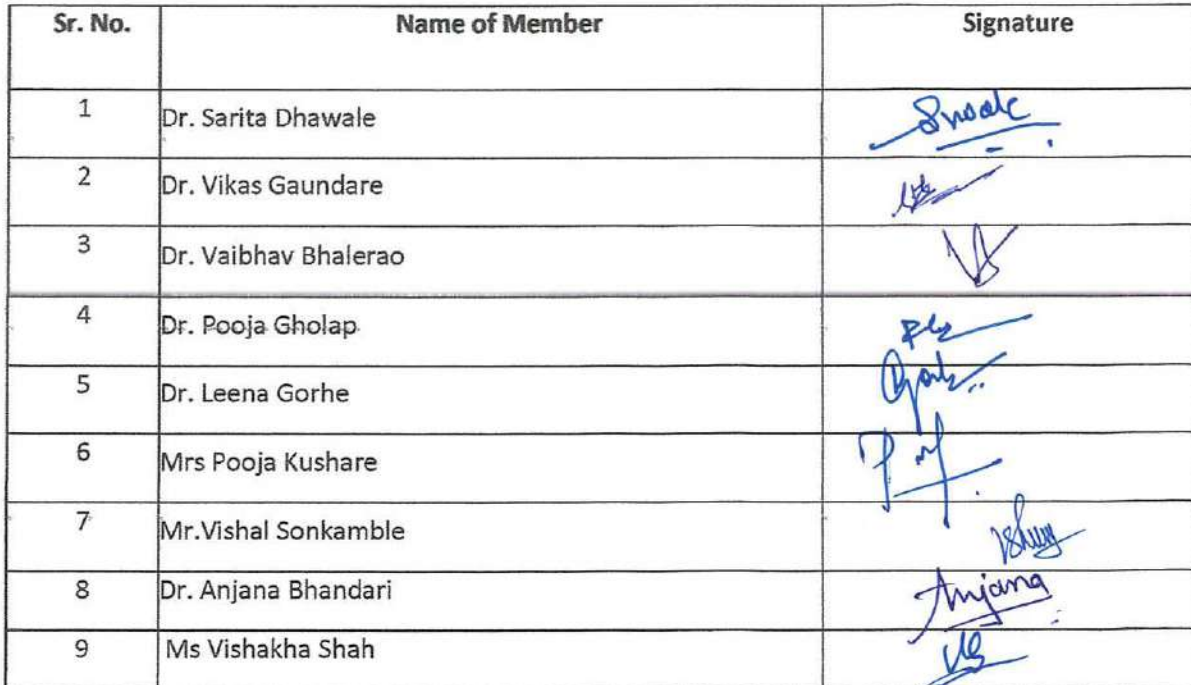 Sr. No. Name of Member Signature
1 Dr. Sarita Dhawale
2 Dr. Vikas Gaundare
3 Dr. Vaibhav Bhalerao
4 Dr. Pooja Gholap
5 Dr. Leena Gorhe
6 Mrs Pooja Kushare
7 Mr.Vishal Sonkamble
8 Dr. Anjana Bhandari Anjana
9 Ms Vishakha Shah